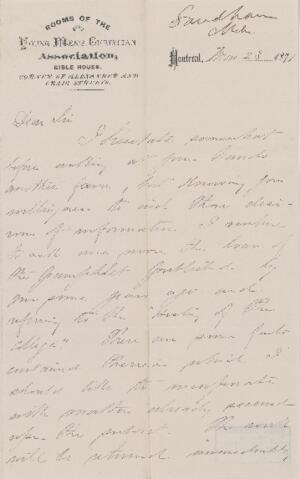 ROOMS OF THE
Young Men's Christian
Association,
BIBLE HOUSE,
CORNER OF ALEXANDER AND
CRAIG STREETS.
Sandham
Montreal, 28 187
Dear Sir
I hesitate somewhat
before asking at your hands
another favor, but knowing your
willingness to aid those desi-
rous of information I venture
to ask once more the loan of
the Pamphlet published by
you some years ago and
referring to the "history of the
College" There are some facts
contained therein which I
should like to incorporate
with matter already secured
upon the subject. The work
will be returned immediately